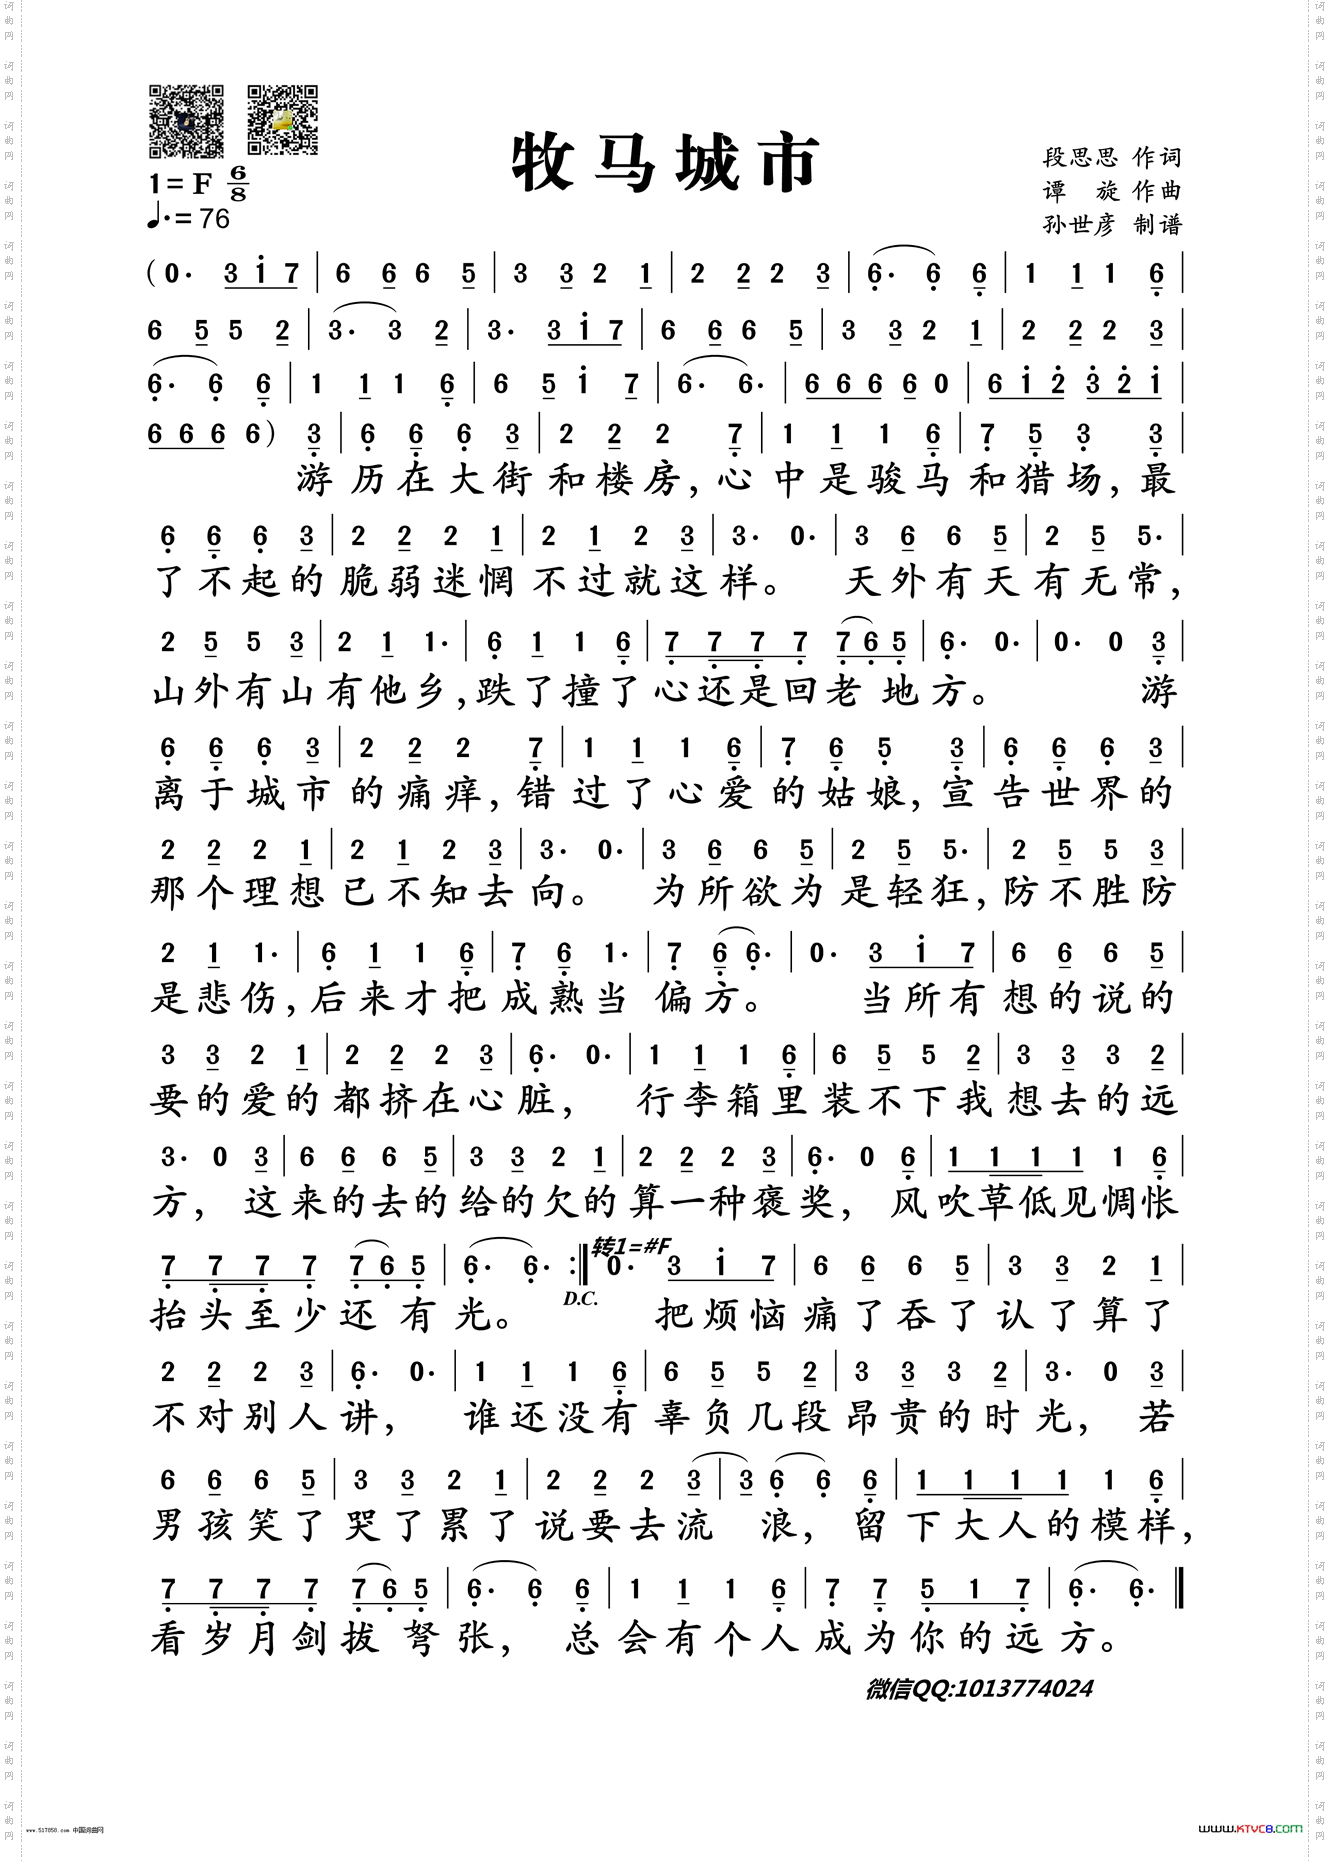 牧马城市
段思思 作词
谭 旋 作曲
孙世彦 制谱
1=F 6/8
♩.=76
(0· 3 i 7 | 6 6 6 5 | 3 3 2 1 | 2 2 2 3 | 6· 6 6 | 1 1 1 6 |
6 5 5 2 | 3· 3 2 | 3· 3 i 7 | 6 6 6 5 | 3 3 2 1 | 2 2 2 3 |
6· 6 6 | 1 1 1 6 | 6 5 i 7 | 6· 6· | 6 6 6 6 0 | 6 i 2 3 2 i |
6 6 6 6) 3 | 6 6 6 3 | 2 2 2 7 | 1 1 1 6 | 7 5 3 3 |
游历在大街和楼房,心中是骏马和猎场,最
6 6 6 3 | 2 2 2 1 | 2 1 2 3 | 3· 0· | 3 6 6 5 | 2 5 5· |
了不起的脆弱迷惘不过就这样。 天外有天有无常,
2 5 5 3 | 2 1 1· | 6 1 1 6 | 7 7 7 7 7 6 5 | 6· 0· | 0· 0 3 |
山外有山有他乡,跌了撞了心还是回老地方。 游
6 6 6 3 | 2 2 2 7 | 1 1 1 6 | 7 6 5 3 | 6 6 6 3 |
离于城市的痛痒,错过了心爱的姑娘,宣告世界的
2 2 2 1 | 2 1 2 3 | 3· 0· | 3 6 6 5 | 2 5 5· | 2 5 5 3 |
那个理想已不知去向。 为所欲为是轻狂,防不胜防
2 1 1· | 6 1 1 6 | 7 6 1· | 7 6 6· | 0· 3 i 7 | 6 6 6 5 |
是悲伤,后来才把成熟当偏方。 当所有想的说的
3 3 2 1 | 2 2 2 3 | 6· 0· | 1 1 1 6 | 6 5 5 2 | 3 3 3 2 |
要的爱的都挤在心脏, 行李箱里装不下我想去的远
3· 0 3 | 6 6 6 5 | 3 3 2 1 | 2 2 2 3 | 6· 0 6 | 1 1 1 1 1 6 |
方, 这来的去的给的欠的算一种褒奖, 风吹草低见惆怅
转1=#F
7 7 7 7 7 6 5 | 6· 6· :‖ 0· 3 i 7 | 6 6 6 5 | 3 3 2 1 |
D.C.
抬头至少还有光。 把烦恼痛了吞了认了算了
2 2 2 3 | 6· 0· | 1 1 1 6 | 6 5 5 2 | 3 3 3 2 | 3· 0 3 |
不对别人讲, 谁还没有辜负几段昂贵的时光, 若
6 6 6 5 | 3 3 2 1 | 2 2 2 3 | 3 6 6 6 | 1 1 1 1 1 6 |
男孩笑了哭了累了说要去流 浪, 留下大人的模样,
7 7 7 7 7 6 5 | 6· 6 6 | 1 1 1 6 | 7 7 5 1 7 | 6· 6· ‖
看岁月剑拔弩张, 总会有个人成为你的远方。
微信QQ:1013774024
www.517858.com 中国词曲网
www.KTVC8.com
词曲网